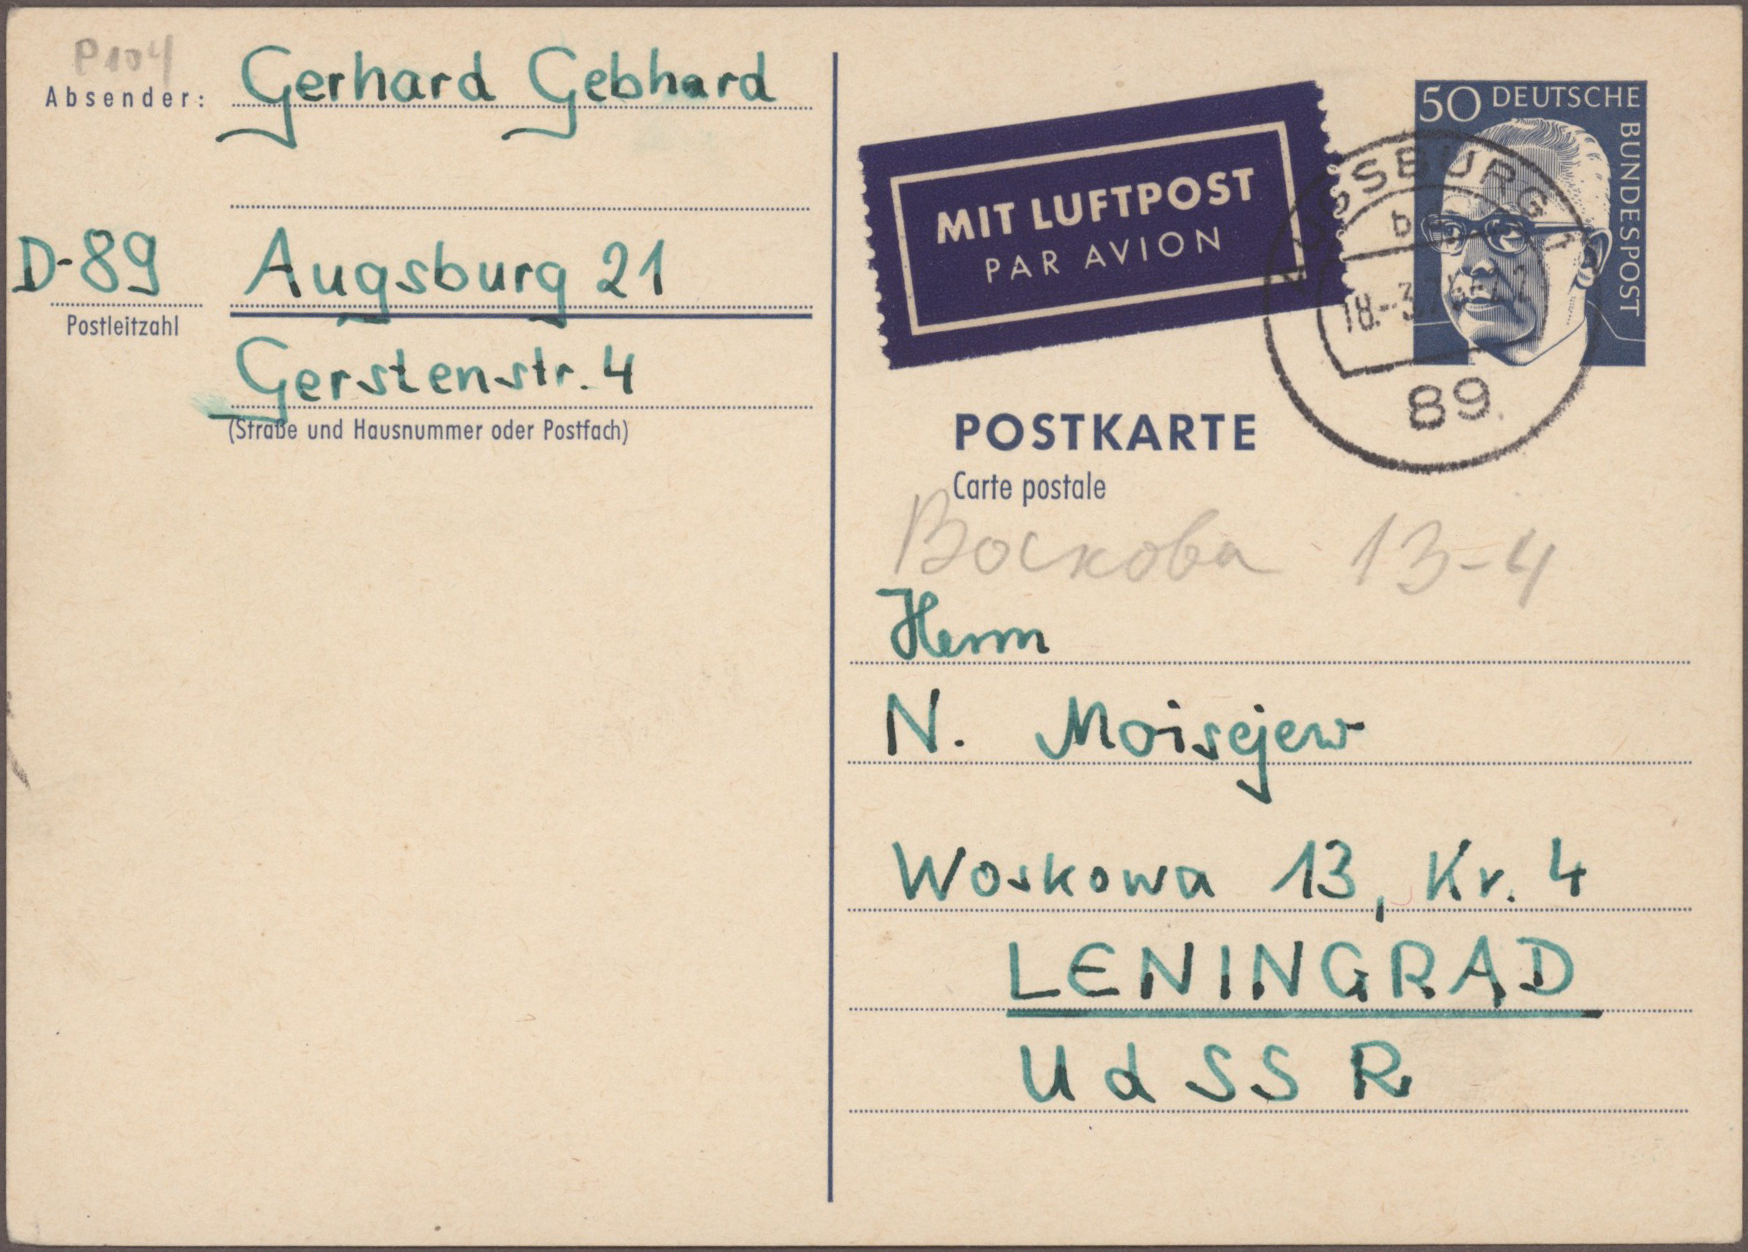 P104
Absender: Gerhard Gebhard
D-89 Augsburg 21
Postleitzahl
Gerstenstr. 4
(Straße und Hausnummer oder Postfach)
MIT LUFTPOST
PAR AVION
50 DEUTSCHE
BUNDESPOST
AUGSBURG 1
b
18.-3.
89
POSTKARTE
Carte postale
Воскова 13-4
Herrn
N. Moisejew
Woskowa 13, Kr. 4
LENINGRAD
UdSSR